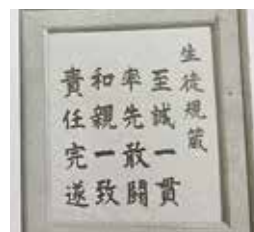 生徒規箴
至誠一貫
率先敢闘
和親一致
責任完遂